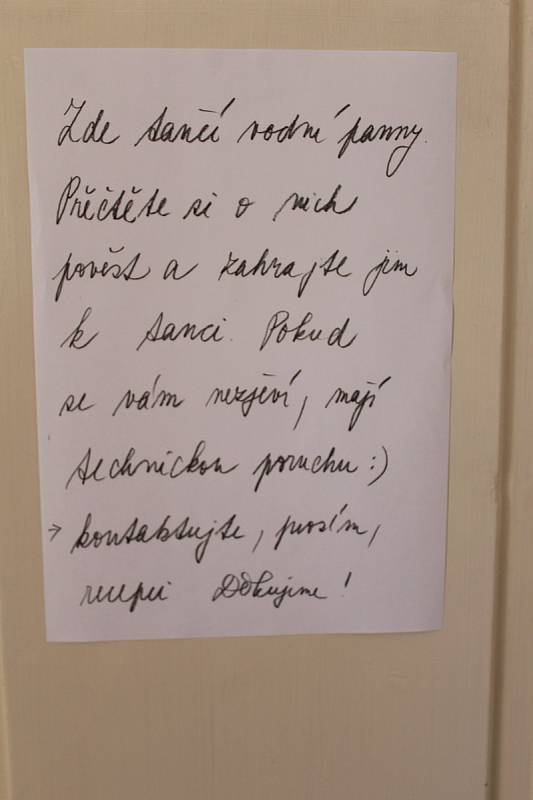 Zde tančí vodní panny.
Přečtěte si o nich
pověst a zahrajte jim
k tanci. Pokud
se vám nezjeví, mají
technickou poruchu :)
→ kontaktujte, prosím,
recepci Děkujeme!